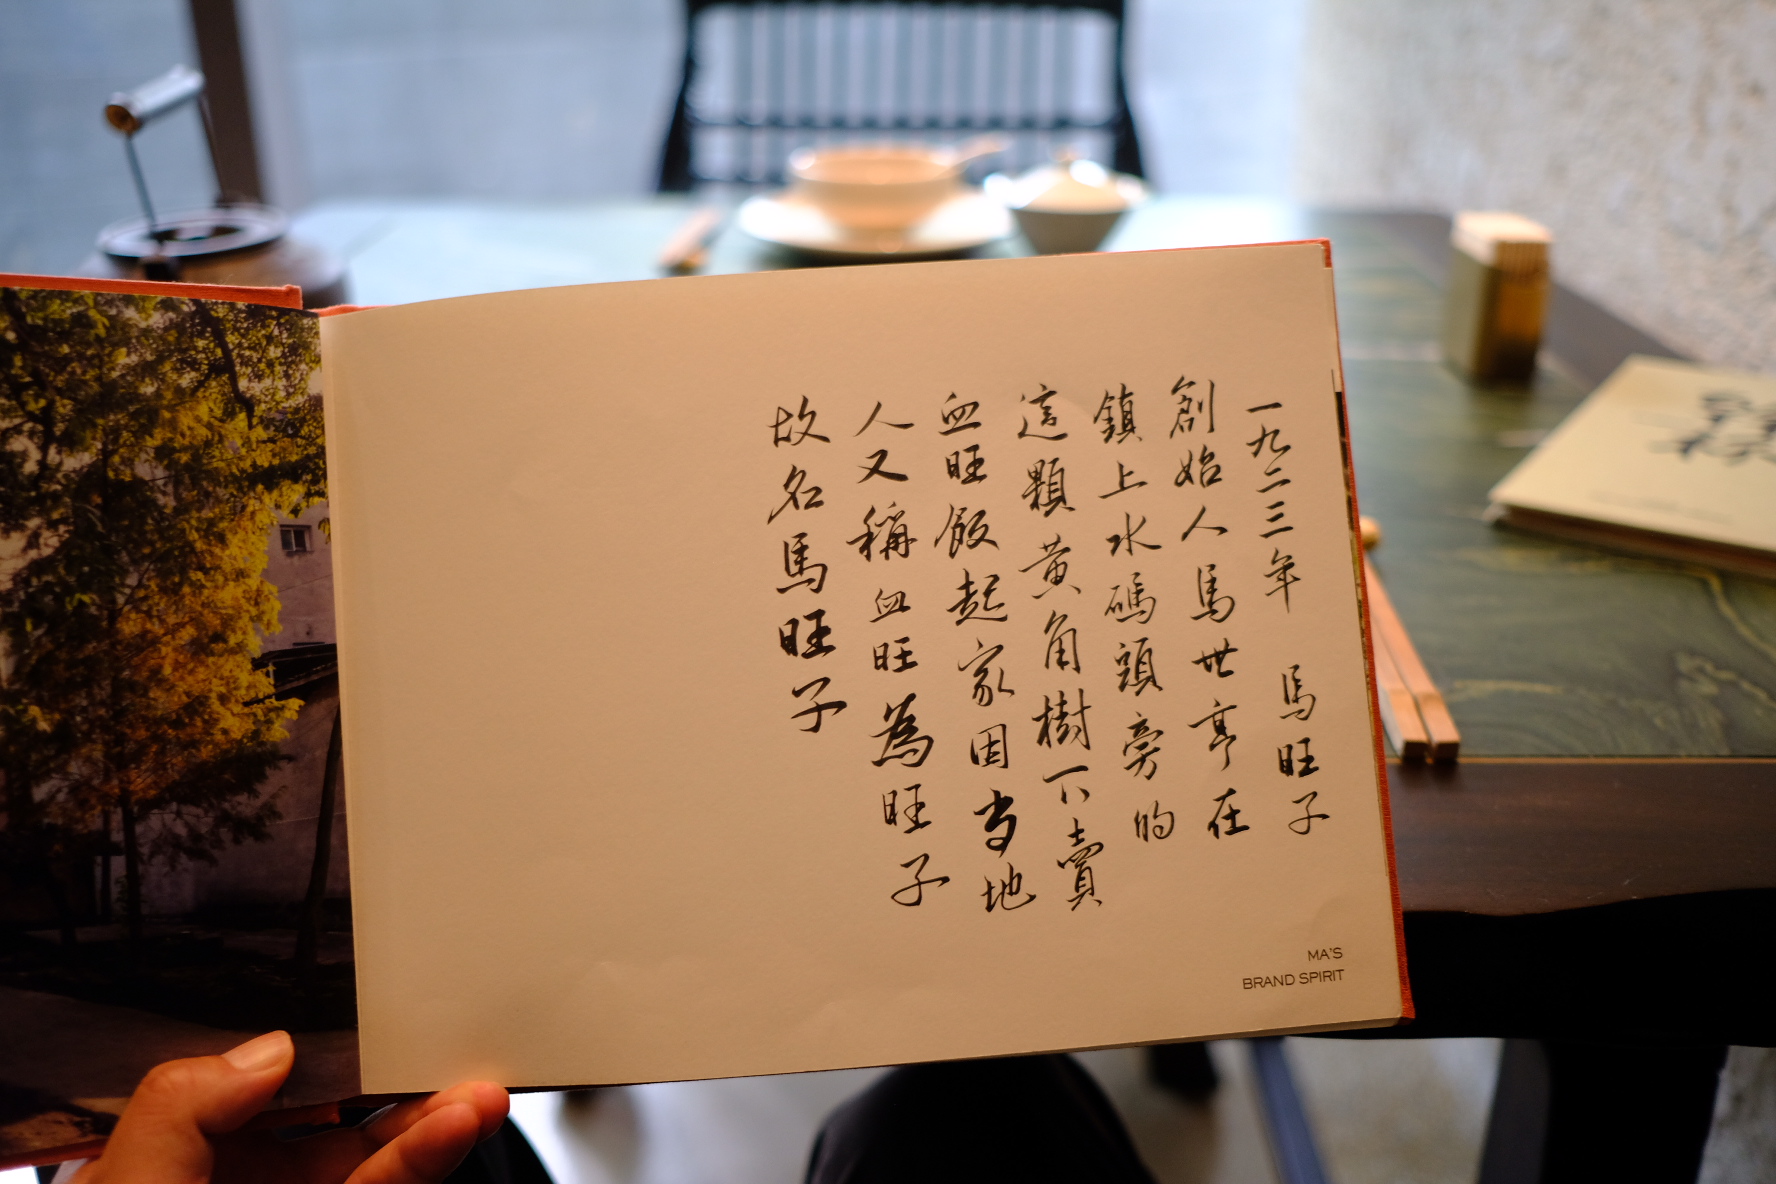 一九二三年 馬旺子
創始人馬世亨在
鎮上水碼頭旁的
這顆黃角樹下賣
血旺飯起家因当地
人又稱血旺為旺子
故名馬旺子
MA'S
BRAND SPIRIT